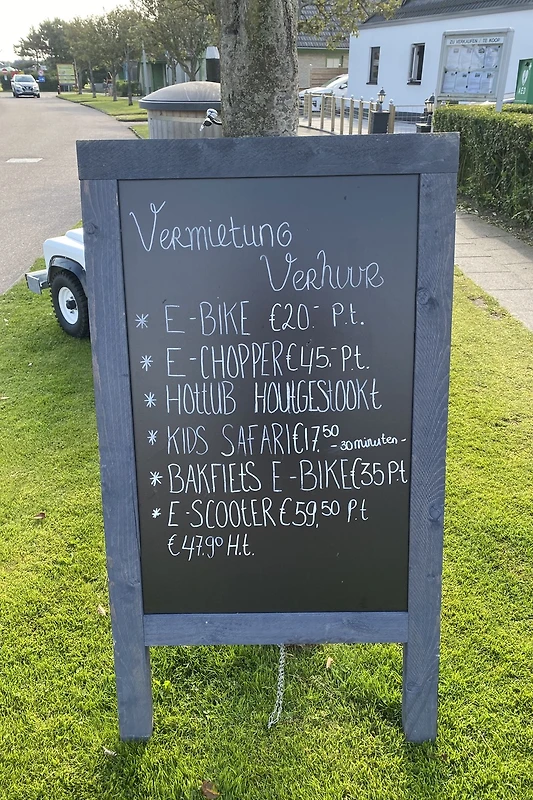 ZU VERKAUFEN / TE KOOP
AED
Vermietung
Verhuur
* E-BIKE €20.- P.t.
* E-CHOPPER €45.- P.t.
* HOTTUB HOUTGESTOOKT
* KIDS SAFARI €17.50 -30 minuten-
* BAKFIETS E-BIKE €35 P.t
* E-SCOOTER €59,50 P.t
€47.90 H.t.